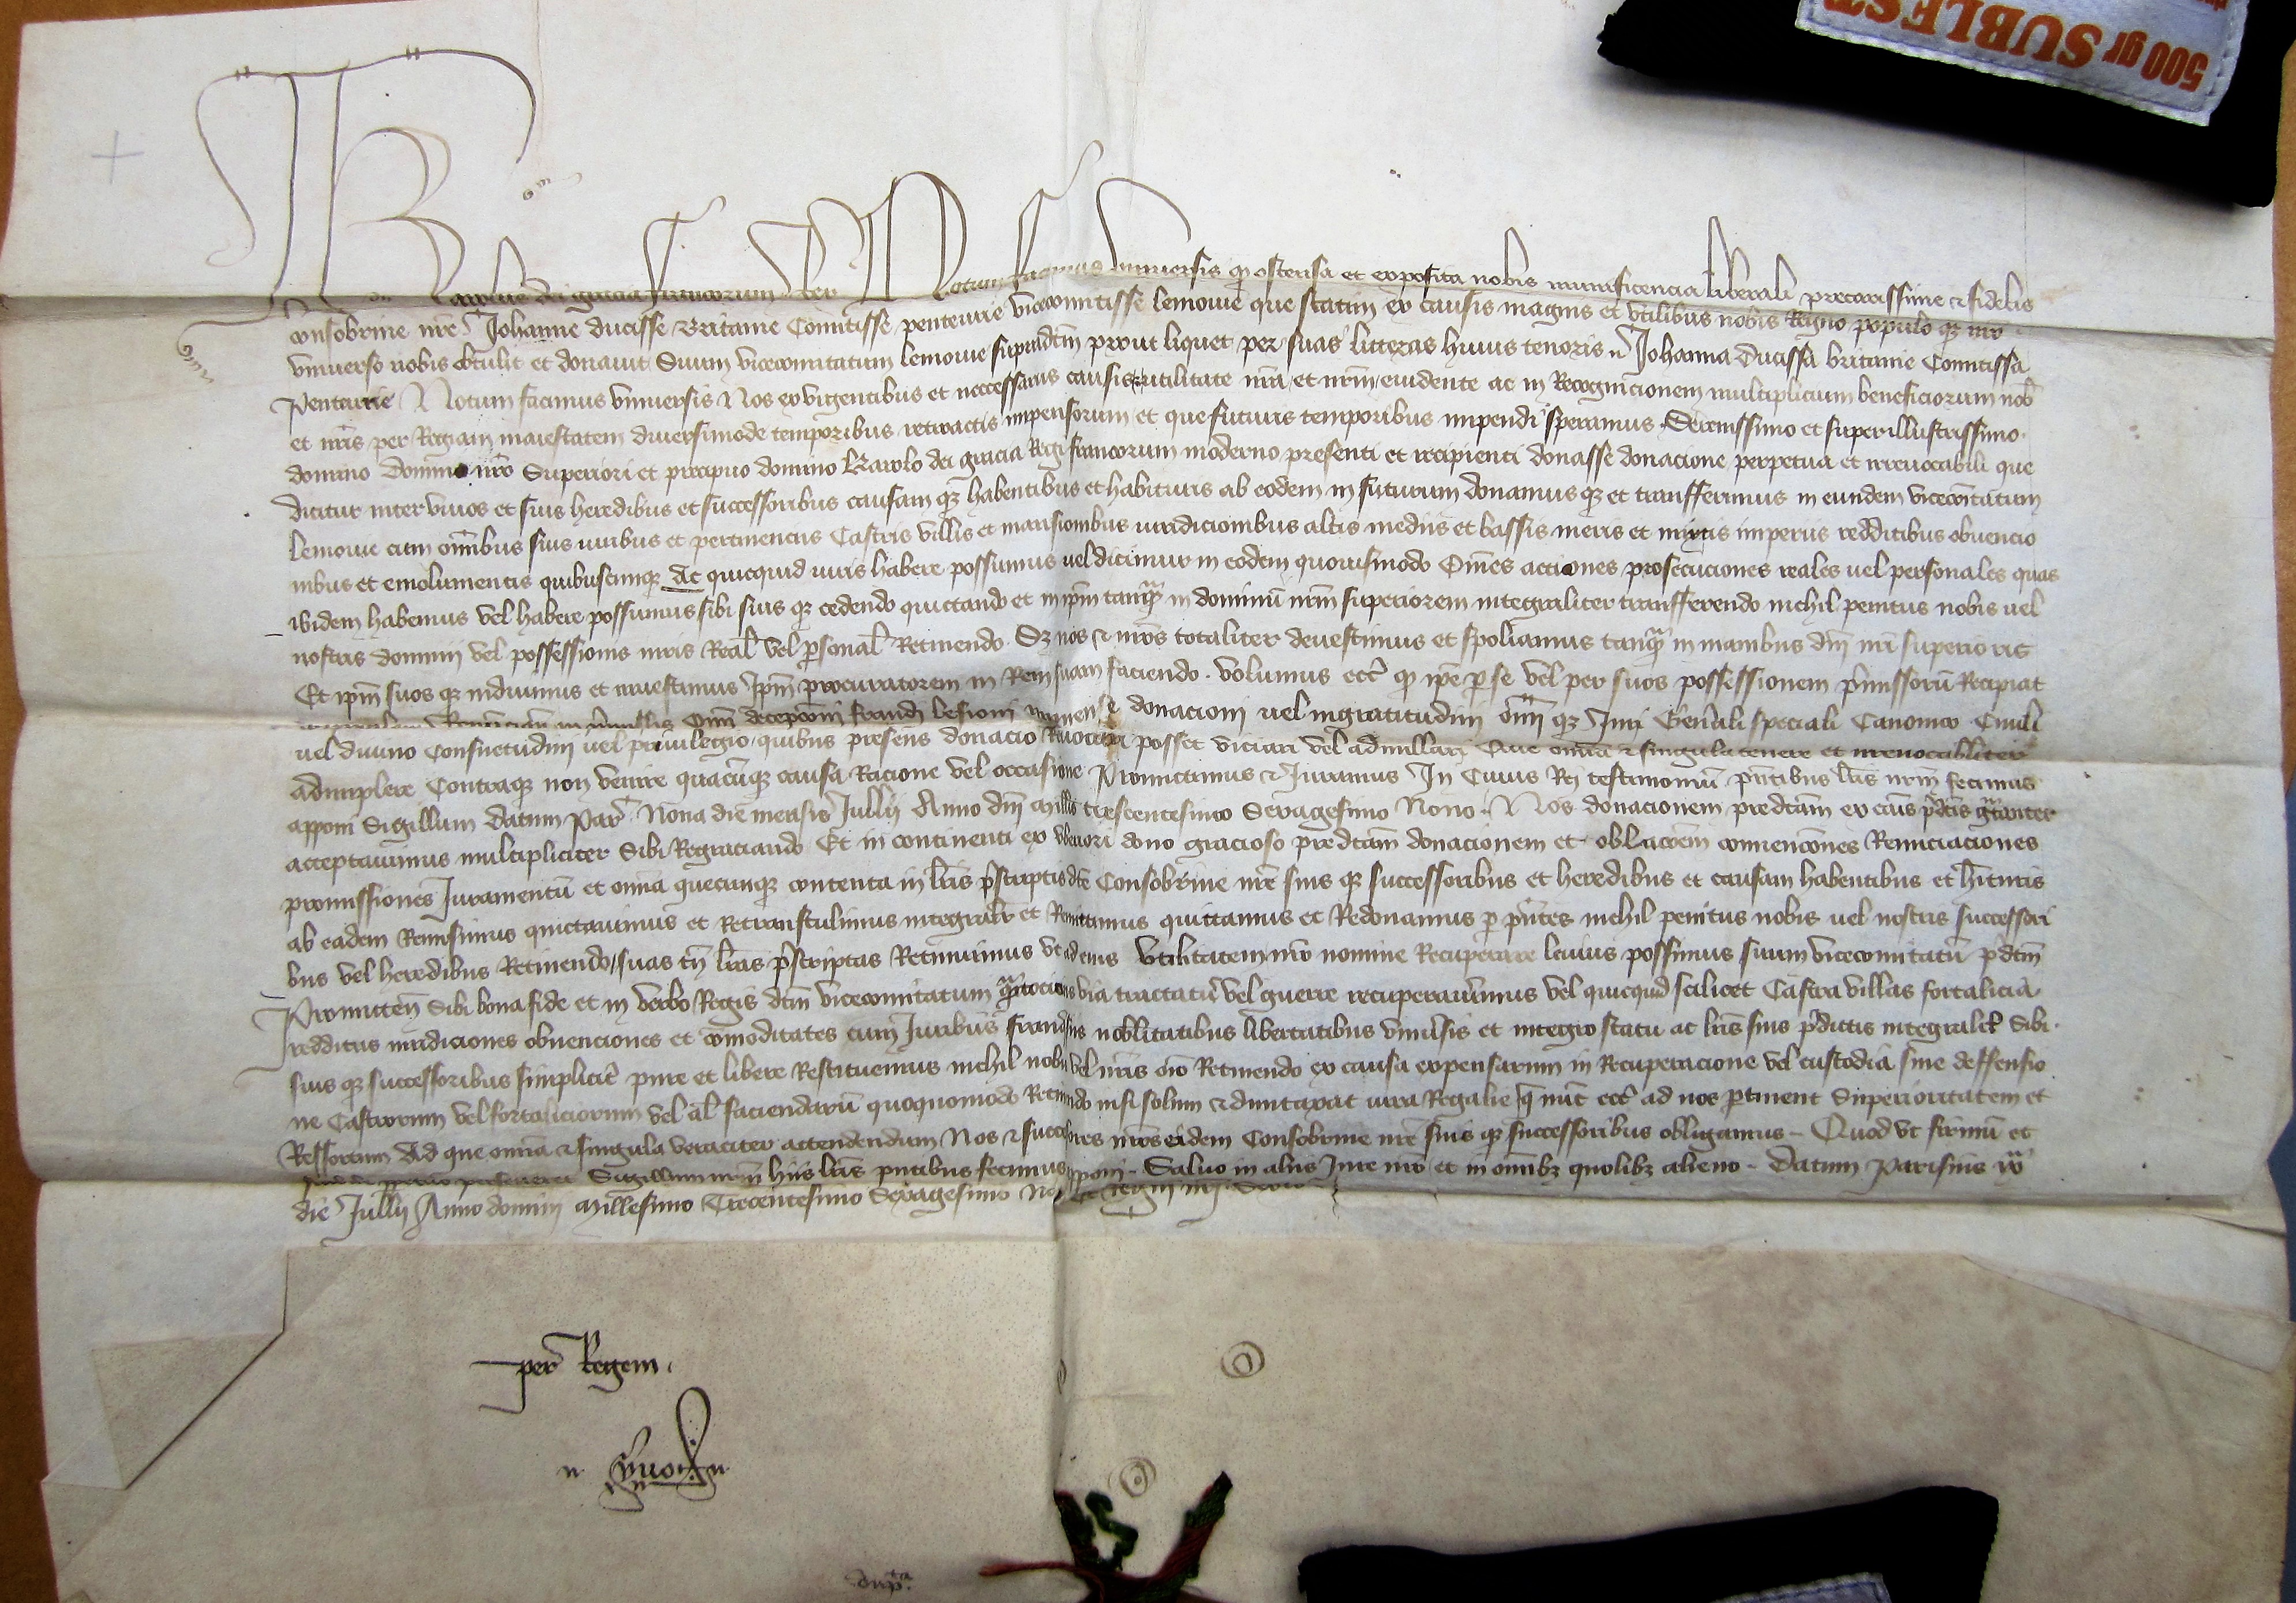 500 gr SUBLEST
Karolus dei gracia francorum Rex Notum facimus vniuersis qꝫ ostensa et exposita nobis munificencia liberali precarissime & fidelis
consobrine nr̄e Johanne ducisse Britanie Comitisse penteurie vicecomitisse lemouic̄ que statim ex causis magnis et vtilibus nobis Regno populo qꝫ nr̄o
vniuerso nobis obtulit et donauit Suum vicecomitatum lemouic̄ supradc̄m prout liquet per suas litteras huius tenoris Johanna ducissa britanie Comitissa
Penteurie Notum facimus vniuersis Nos ex vrgentibus et neccessariis causis & vtilitate nr̄a et nr̄m euidente ac in Recognicionem multiplicium beneficiorum nob̄
et nr̄is per Regiam maiestatem diuersimode temporibus retroactis impensorum et que futuris temporibus impendi speramus Serenissimo et superillustrissimo
domino Domino nr̄o Superiori et precipuo domino Karolo dei gracia Regi francorum moderno presenti et recipienti donasse donacione perpetua et irreuocabili que
dicitur inter viuos et suis heredibus et successoribus causam qꝫ habentibus et habituris ab eodem in futurum donamus qꝫ et transferimus in eundem vicecōitatum
lemouic̄ cum om̄ibus suis iuribus et pertinenciis Castris villis et mansionibus iuridicionibus altis mediis et bassis meris et mixtis imperiis redditibus obuencio
nibus et emolumentis quibuscunqꝫ Ac quicquid iuris habere possumus vel dicimur in eodem quouismodo Om̄es actiones prosecuciones reales vel personales quas
ibidem habemus vel habere possumus sibi suis qꝫ cedendo quictando et in ip̄m tanqͣꝫ in dominū nr̄m superiorem integraliter transferendo nichil penitus nobis vel
nostris dominii vel possessionis iuris Real̄ vel ꝑsonal̄ Retinendo Sꝫ nos & nr̄os totaliter deuestimus et spoliamus tanqͣꝫ in manibus dn̄i nr̄i superioris
Et ip̄m suos qꝫ induimus et inuestimus Ip̄m procuratorem in Rem suam faciendo volumus ecc̄ qꝫ ip̄e ꝑ se vel per suos possessionem p̄missorū Recipiat
om̄i decepc̄oni fraudi lesioni immense donacioni vel ingratitudini om̄i qꝫ Iuri Gen̄ali speciali Canonico Ciuili
vel diuino Consuetudini vel priuilegio quibus presens donacio Reuocari posset viciari vel adnullari Que om̄ia & singula tenere et irreuocabiliter
adimplere Contraqꝫ non venire quacūqꝫ causa Racione vel occasione Promictimus & Iuramus In Cuius Rei testimoniū p̄ntibus lr̄is nr̄m fecimus
apponi Sigillum Datum Par̄ Nona die mensis Jullii Anno dn̄i Millo trescentesimo Sexagesimo Nono Nos donacionem predc̄am ex cāis p̄dc̄is gͣtanter
acceptauimus multipliciter Sibi Regraciando Et in continenti ex vberiori dono gracioso predc̄am donacionem et oblacōem conuencōnes Renūciaciones
promissiones Iuramentū et om̄ia quecunqꝫ contenta in lr̄is p̄scriptis dc̄e Consobrine nr̄e suis qꝫ successoribus et heredibus et causam habentibus et h̄ituris
ab eadem Remisimus quictauimus et Retranstulimus integralr̄ et Remittimus quittamus et Redonamus ꝑ p̄ntes nichil penitus nobis vel nostris successori
bus vel heredibus Retinendo suas tn̄ lr̄as p̄scriptas Retinuimus vt ad eius vtilitatem nr̄o nomine Recuperare leuius possimus suum vicecomitatū p̄dc̄m
Promitten̄ Sibi bona fide et in verbo Regis dc̄m vicecomitatum qͣntociens via tractatus vel guerre recuperauerimus vel quicquid scilicet Castra villas fortalicia
redditus iuridiciones obuenciones et cōmoditates cum Iuribus franchisiis nobilitatibus libertatibus vniūsis et integro statu ac lr̄is suis p̄dictis integralit̄ Sibi
suis qꝫ successoribus simplicit̄ pure et libere Restituemus nichil nobis vel nr̄is oīo Retinendo ex causa expensarum in Recuperacione vel custodia siue deffensio
ne Castrorum vel fortaliciorum vel al̄ faciendarū quoquomodo Retinendo nisi solum & duntaxat iura Regalie q̄ nūc ecc̄ ad nos ꝑtinent Superioritatem et
Ressortum Ad que om̄ia & singula veraciter attendendum Nos & successores nr̄os eidem Consobrine nr̄e suis qꝫ successoribus obligamus Quod vt firmū et
Sigillum nr̄m hiis lr̄is p̄ntibus fecimus apponi Saluo in aliis Iure nr̄o et in om̄ibꝫ quolibꝫ alieno Datum Parisius
die Jullii Anno domini Millesimo Trecentesimo Sexagesimo Nono Et regni nr̄i Sexto
per Regem
yuo
dup̄ᵗᵃ